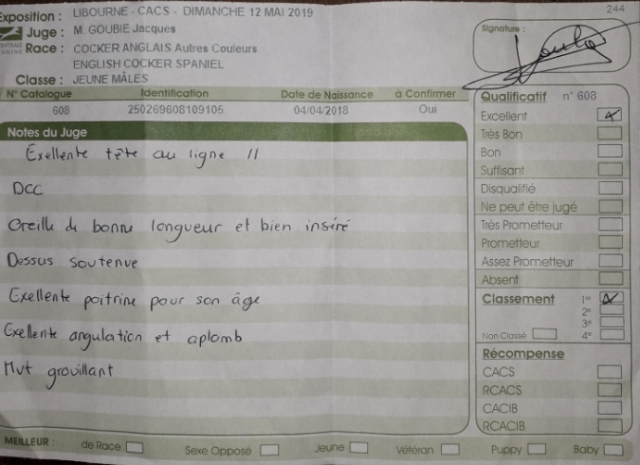 Exposition : LIBOURNE - CACS - DIMANCHE 12 MAI 2019
244
Juge : M. GOUBIE Jacques
Race : COCKER ANGLAIS Autres Couleurs
ENGLISH COCKER SPANIEL
Classe : JEUNE MÂLES
Signature :
N° Catalogue Identification Date de Naissance à Confirmer
608 250269608109105 04/04/2018 Oui
Notes du Juge
Exellente tête au ligne !!
DCC
Oreille de bonne longueur et bien inséré
Dessus soutenue
Exellente poitrine pour son âge
Exellente angulation et aplomb
Mvt grouillant
Qualificatif n° 608
Excellent
Très Bon
Bon
Suffisant
Disqualifié
Ne peut être jugé
Très Prometteur
Prometteur
Assez Prometteur
Absent
Classement 1er
2e
3e
Non Classé 4e
Récompense
CACS
RCACS
CACIB
RCACIB
MEILLEUR : de Race Sexe Opposé Jeune Vétéran Puppy Baby